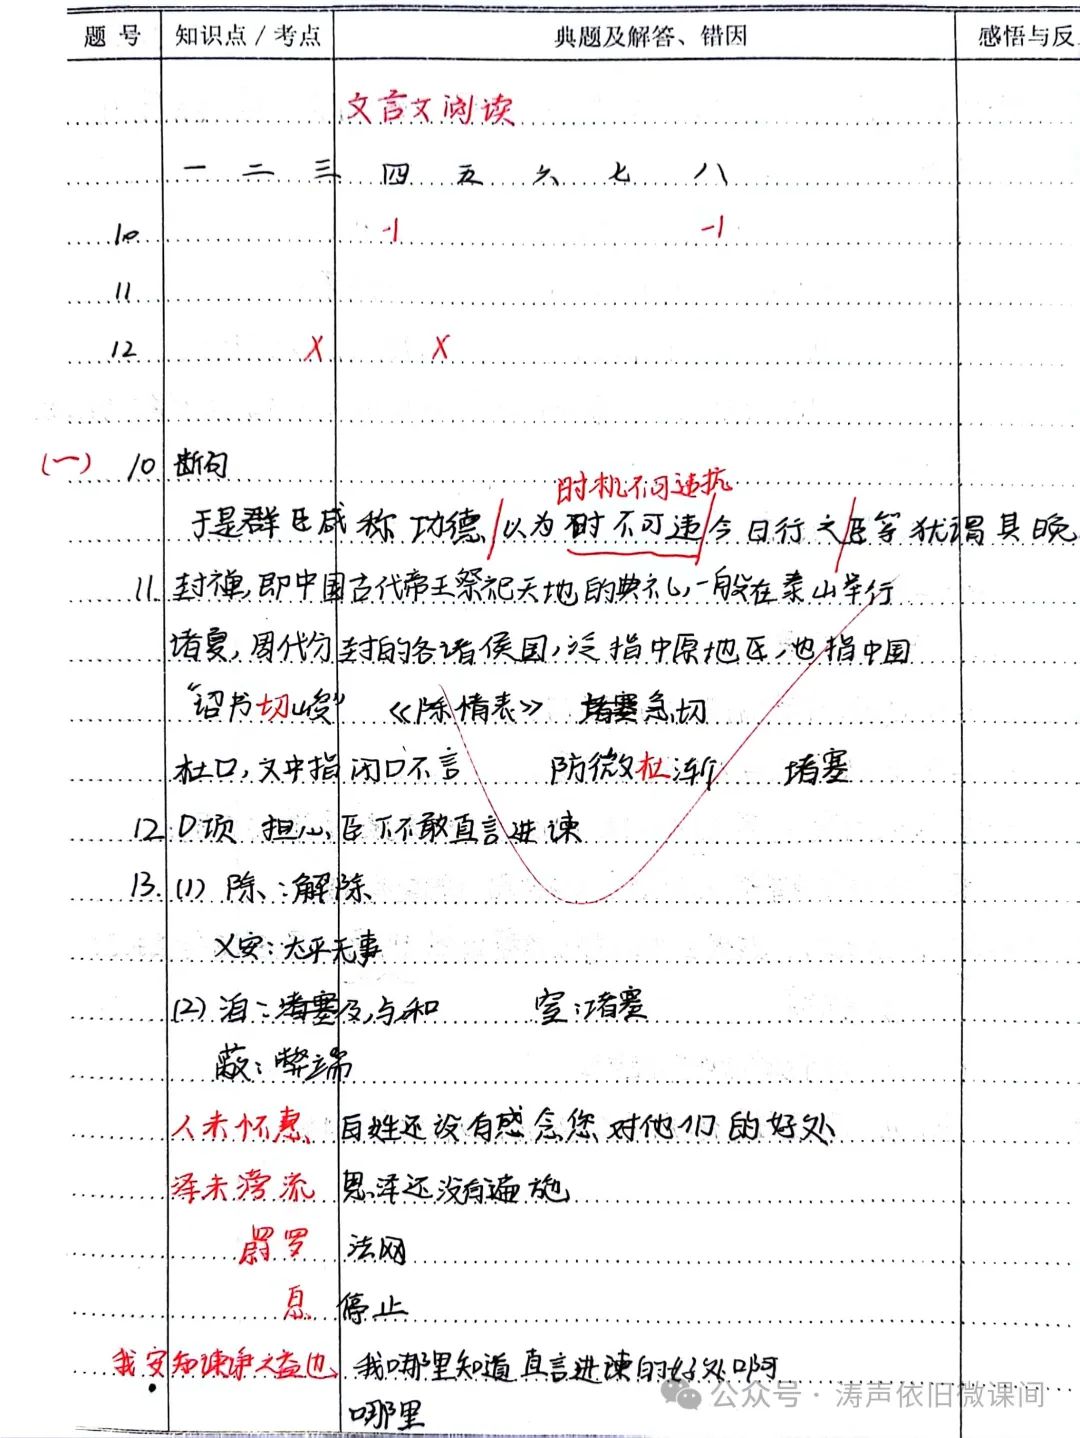 题号 知识点/考点 典题及解答、错因 感悟与反
文言文阅读
一 二 三 四 五 六 七 八
10 -1 -1
11
12 X X
(一) 10 断句
时机不可违抗
于是群臣咸称功德/以为时不可违/今日行之/臣等犹谓其晚
11. 封禅,即中国古代帝王祭祀天地的典礼,一般在泰山举行
诸夏,周代分封的各诸侯国,泛指中原地区,也指中国
“诏书切峻” 《陈情表》 急切
杜口,文中指闭口不言 防微杜渐 堵塞
12. D项 担心臣下不敢直言进谏
13. (1) 除:解除
乂安:太平无事
(2) 洎:及,与,和 窒:堵塞
蔽:弊端
人未怀惠 百姓还没有感念您对他们的好处
泽未滂流 恩泽还没有遍施
罻罗 法网
息 停止
我安知谏诤之益也 我哪里知道直言进谏的好处啊
哪里
公众号·涛声依旧微课间